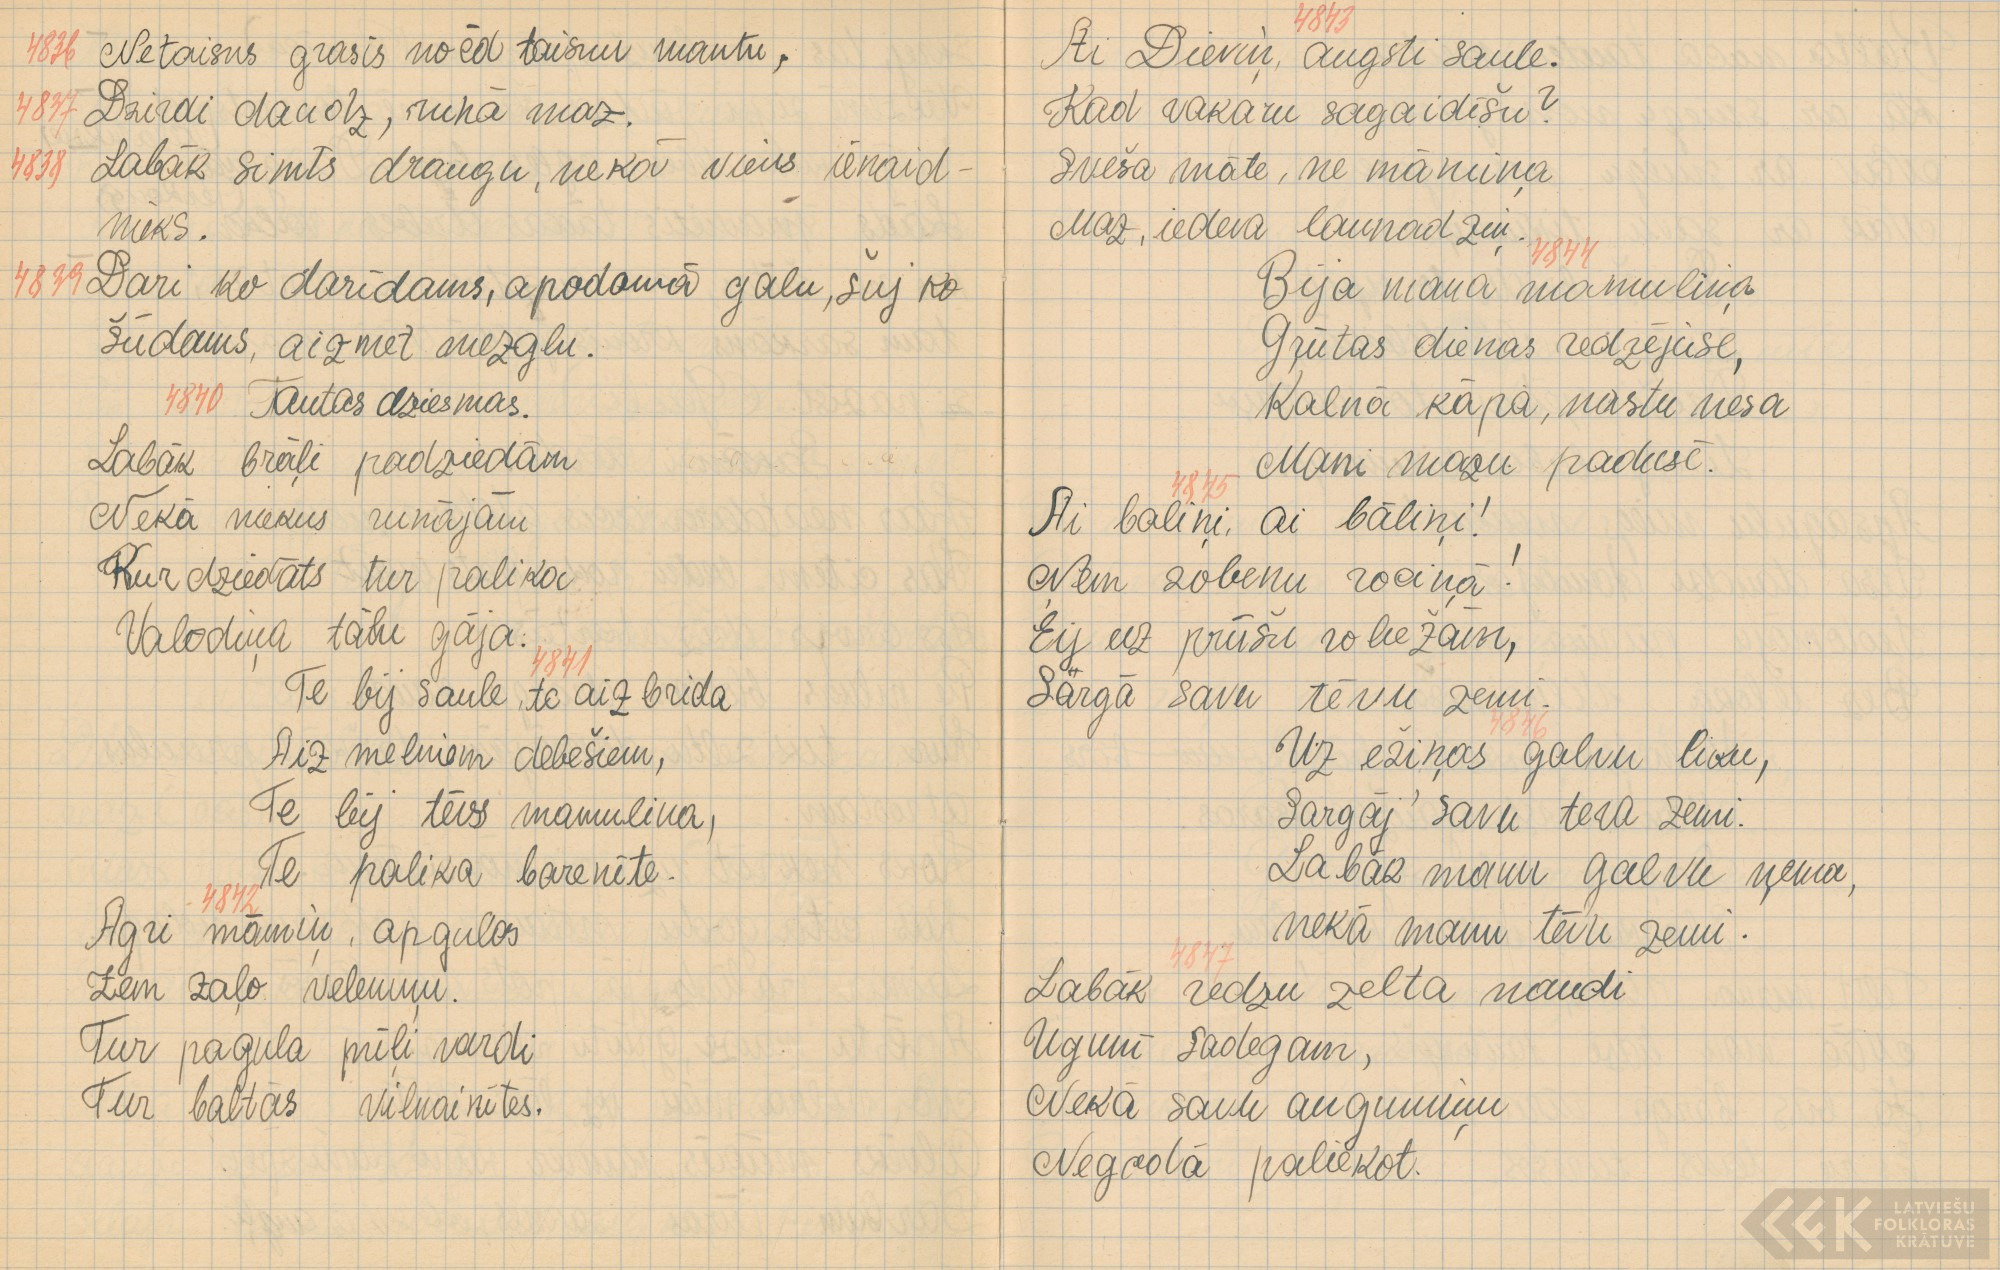 4836 Netaisns grasis noēd taisnu mantu,
4837 Dzirdi daudz, runā maz.
4838 Labāk simts draugu, nekā viens ienaid-
nieks.
4839 Dari ko darīdams, apodomā galu, šuj ko
šūdams, aizmet mezglu.
4840 Tautas dziesmas.
Labāk brāļi padziedām
Nekā niekus runājām
Kur dziedāts tur palika
Valodiņa tālu gāja.
4841
Te bij saule, te aizbrida
Aiz melniem debešiem,
Te bij tēvs mamulina,
Te palika barenīte.
4842
Agri māmiņ, apgulos
Zem zaļo velenuņu.
Tur paguļa mīļi vardi
Tur baltās vilnainītes.
4843
Ai Dieviņ, augsti saule.
Kad vakaru sagaidīšu?
Sveša māte, ne māmiņa
Maz, iedeva launadziņ.
4844
Bija mana mamuliņa
Gŗūtas dienas redzējuse,
Kalnā kāpa, nastu nesa
Mani mazu padusē.
4845
Ai baliņi, ai bāliņi!
Ņem zobenu rociņā!
Ej uz prūšu robežām,
Sārgā savu tēvu zemi.
4846
Uz ežiņas galvu liku,
Sargāj' savu teva zemi.
Labāk manu galvu ņema,
nekā manu tēvu zemi.
4847
Labāk redzu zelta naudi
Ugunī sadegam,
Nekā savu augumiņu
Negodā paliekot.
LATVIEŠU
FOLKLORAS
KRĀTUVE